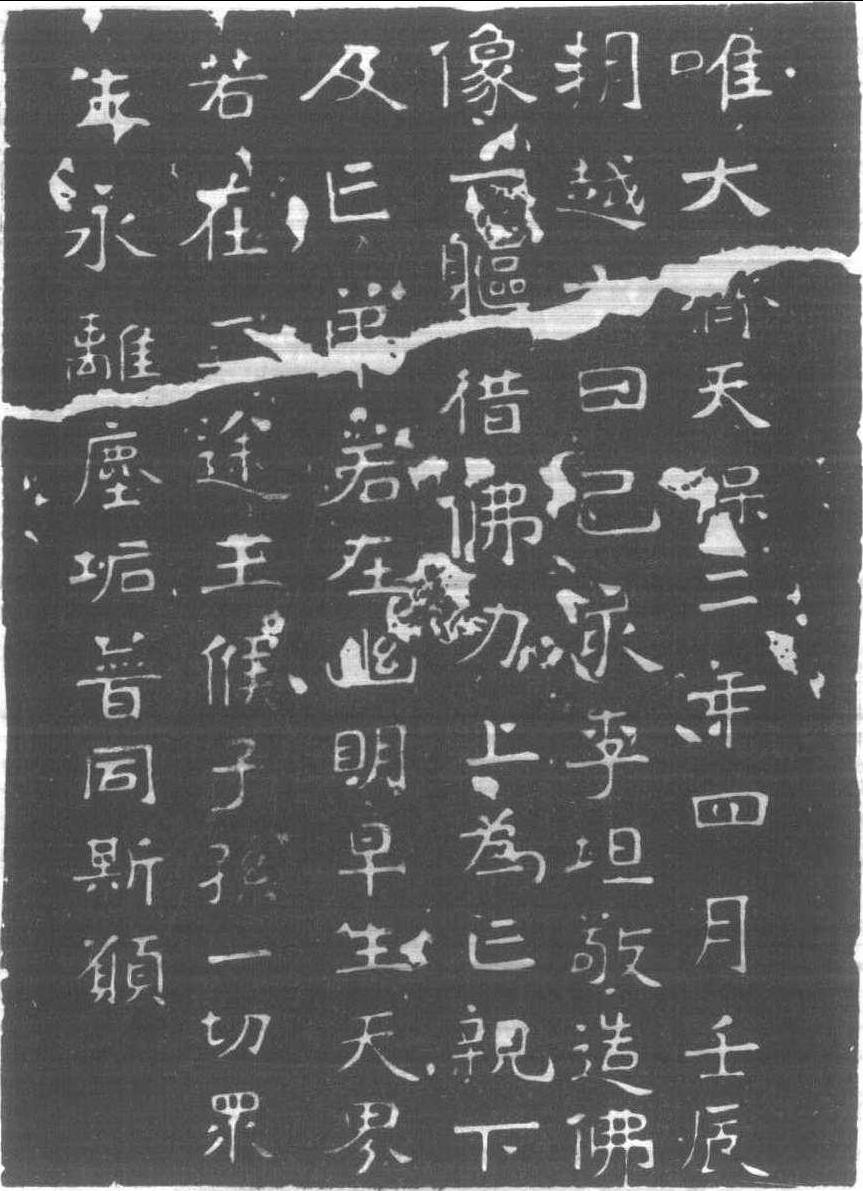 唯大齊天保二年四月壬辰
朔越日己亥李坦敬造佛
像一軀借佛功上為亡親下
及亡弟若在幽明早生天界
若在三途王候子孫一切眾
生永離塵垢普同斯願